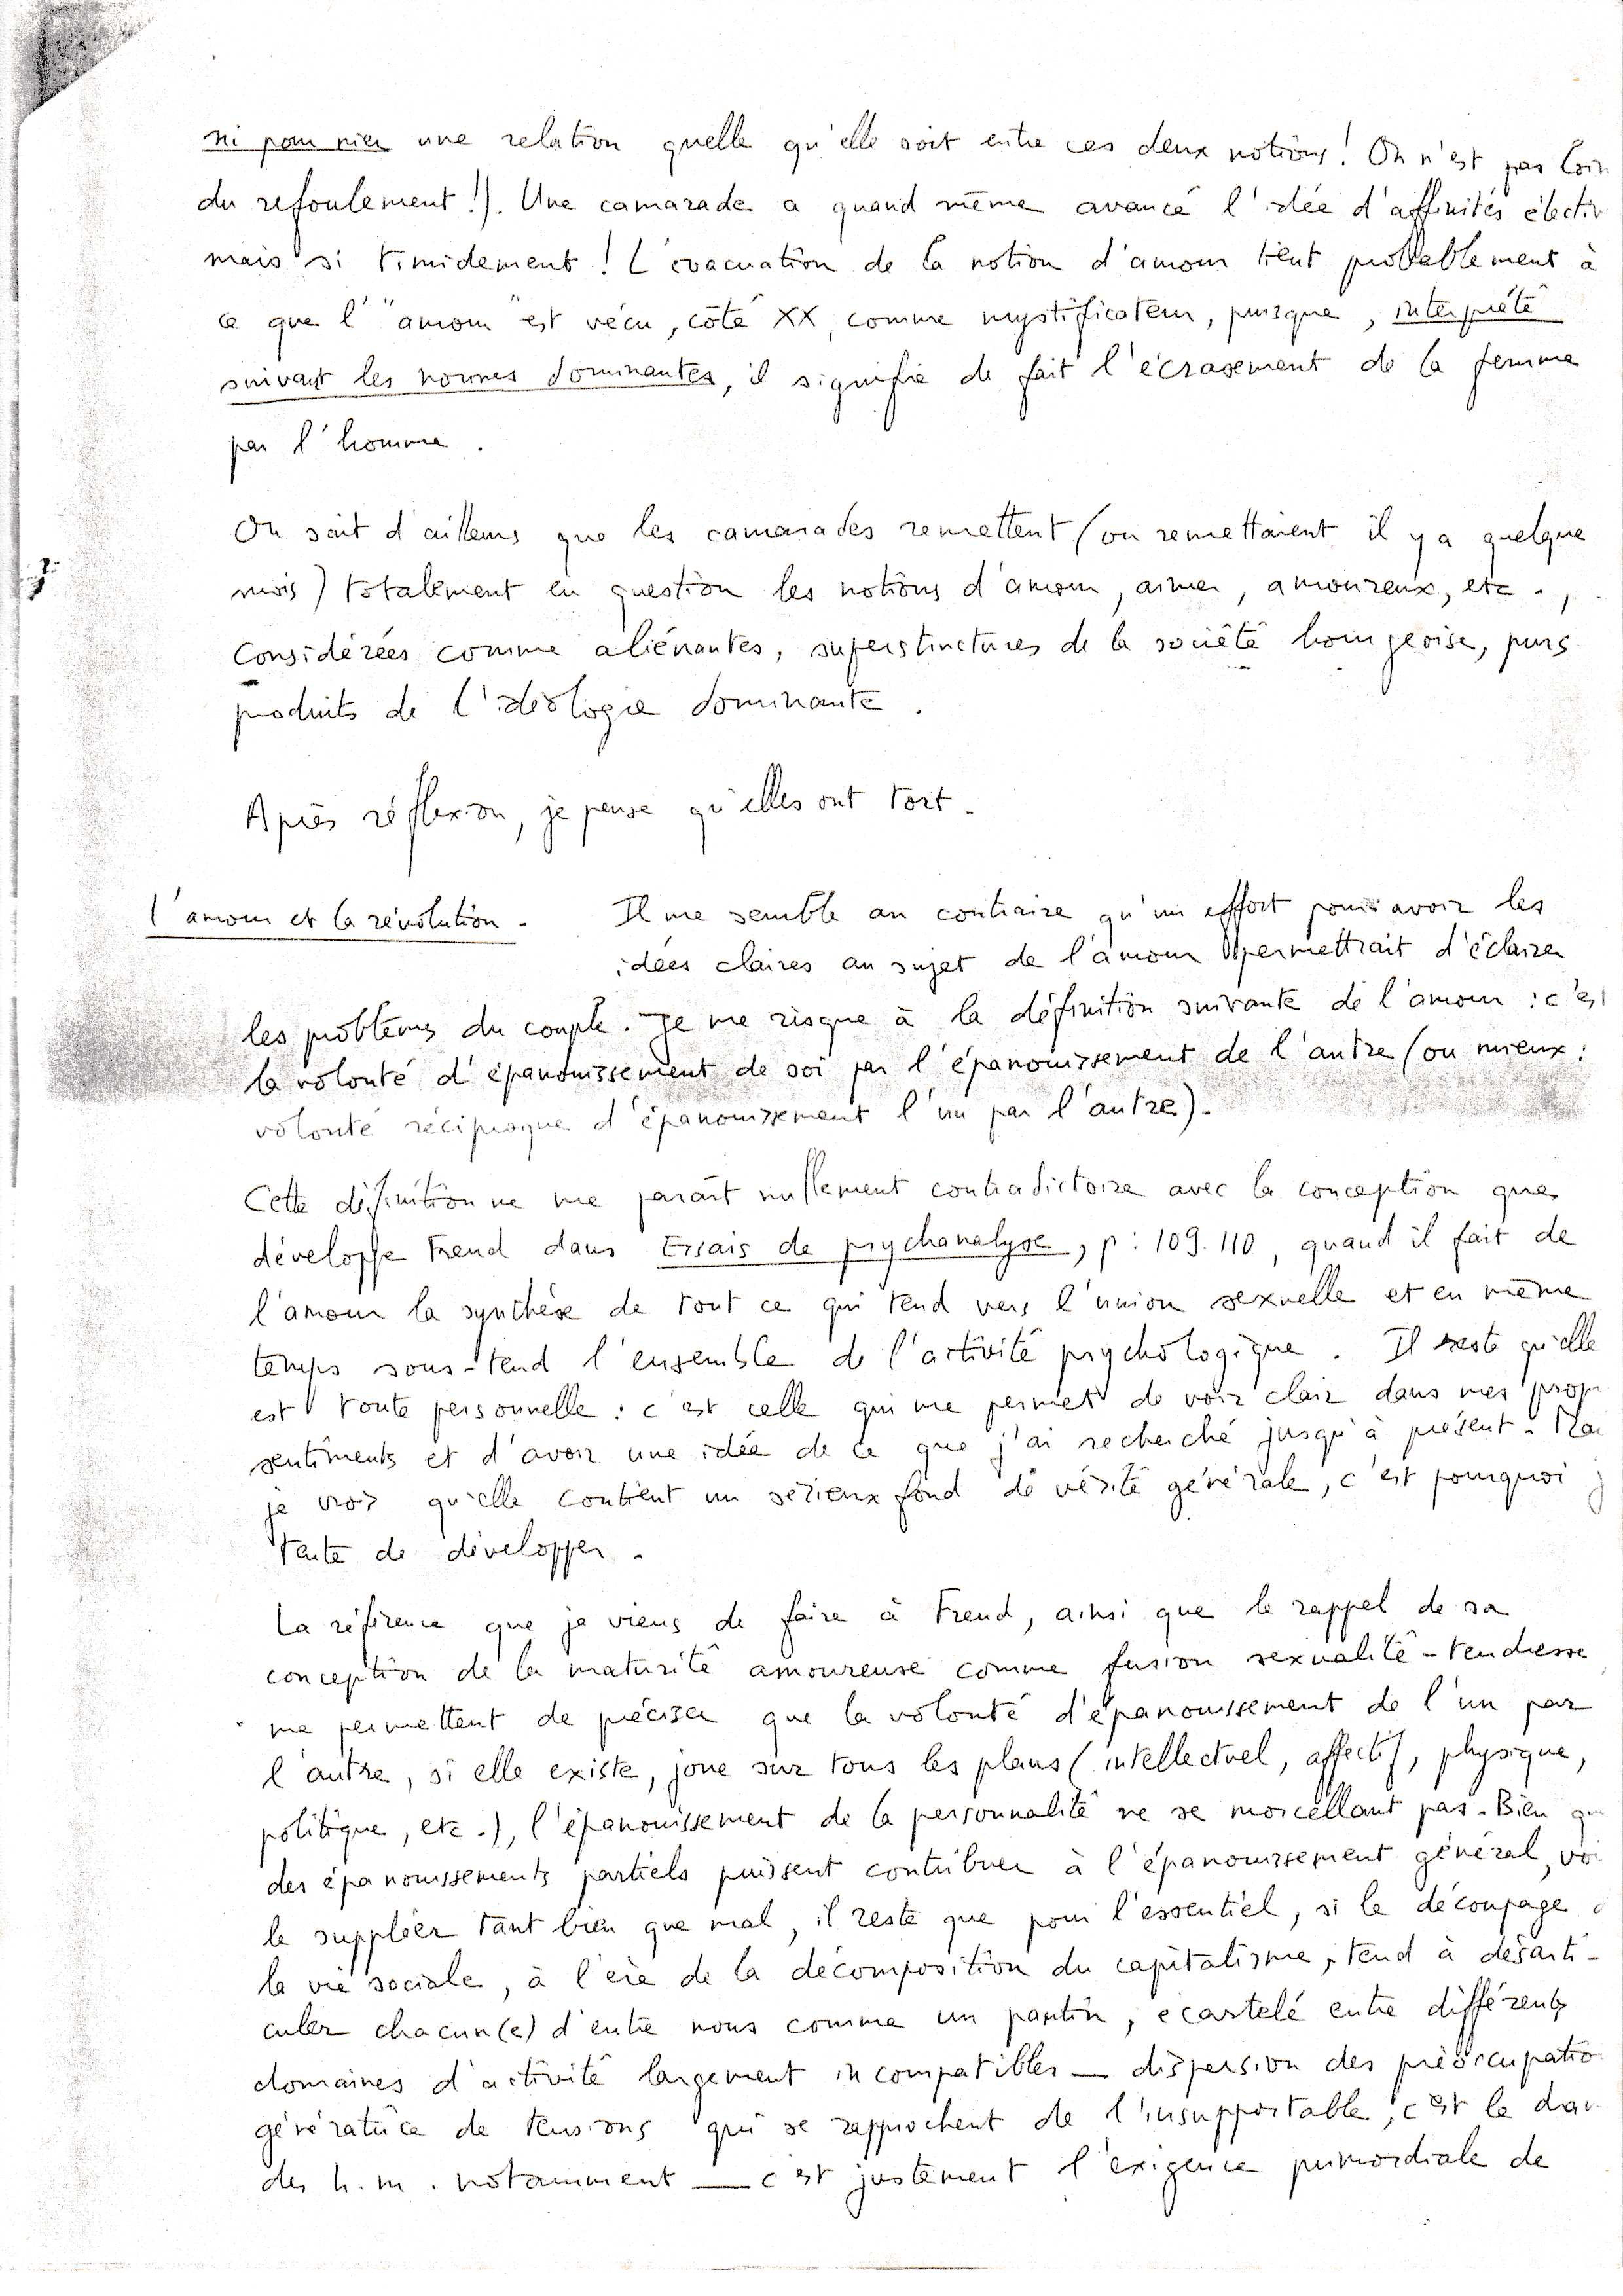 ni pour nier une relation quelle qu'elle soit entre ces deux notions ! On n'est pas loin
du refoulement !). Une camarade a quand même avancé l'idée d'affinités électiv
mais si timidement ! L'évacuation de la notion d'amour tient probablement à
ce que l'"amour" est vécu, côté XX, comme mystificateur, puisque, interprété
suivant les normes dominantes, il signifie de fait l'écrasement de la femme
par l'homme.
On sait d'ailleurs que les camarades remettent (ou remettaient il y a quelque
mois) totalement en question les notions d'amour, aimer, amoureux, etc.,
considérées comme aliénantes, superstructures de la société bourgeoise, purs
produits de l'idéologie dominante.
Après réflexion, je pense qu'elles ont tort.
l'amour et la révolution. Il me semble au contraire qu'un effort pour avoir les
idées claires au sujet de l'amour permettrait d'éclairer
les problèmes du couple. Je me risque à la définition suivante de l'amour : c'est
la volonté d'épanouissement de soi par l'épanouissement de l'autre (ou mieux :
volonté réciproque d'épanouissement l'un par l'autre).
Cette définition ne me paraît nullement contradictoire avec la conception que
développe Freud dans Essais de psychanalyse, p : 109.110, quand il fait de
l'amour la synthèse de tout ce qui tend vers l'union sexuelle et en même
temps sous-tend l'ensemble de l'activité psychologique. Il reste qu'elle
est toute personnelle : c'est celle qui me permet de voir clair dans mes prop
sentiments et d'avoir une idée de ce que j'ai recherché jusqu'à présent. Mai
je crois qu'elle contient un sérieux fond de vérité générale, c'est pourquoi j
tente de développer.
La référence que je viens de faire à Freud, ainsi que le rappel de sa
conception de la maturité amoureuse comme fusion sexualité-tendresse
me permettent de préciser que la volonté d'épanouissement de l'un par
l'autre, si elle existe, joue sur tous les plans (intellectuel, affectif, physique,
politique, etc.), l'épanouissement de la personnalité ne se morcellant pas. Bien qu
des épanouissements partiels puissent contribuer à l'épanouissement général, voi
le suppléer tant bien que mal, il reste que pour l'essentiel, si le découpage d
la vie sociale, à l'ère de la décomposition du capitalisme, tend à désarti-
culer chacun(e) d'entre nous comme un pantin, écartelé entre différents
domaines d'activité largement incompatibles — dispersion des préoccupatio
génératrice de tensions qui se rapprochent de l'insupportable, c'est le dra
des h.m. notamment — c'est justement l'exigence primordiale de